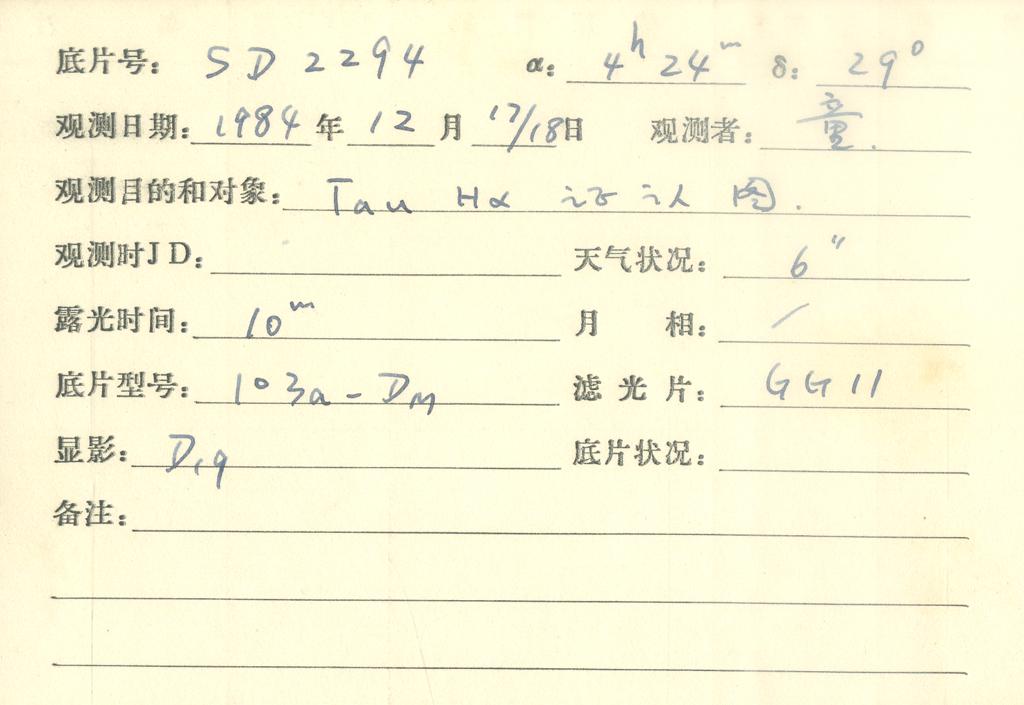 底片号: SD2294 α: 4ʰ24ᵐ δ: 29°
观测日期: 1984年12月17/18日 观测者: 童.
观测目的和对象: Tau Hα 证认图.
观测时JD: 天气状况: 6"
露光时间: 10ᵐ 月 相: /
底片型号: 103a-D 滤光片: GG11
显影: D19 底片状况:
备注: